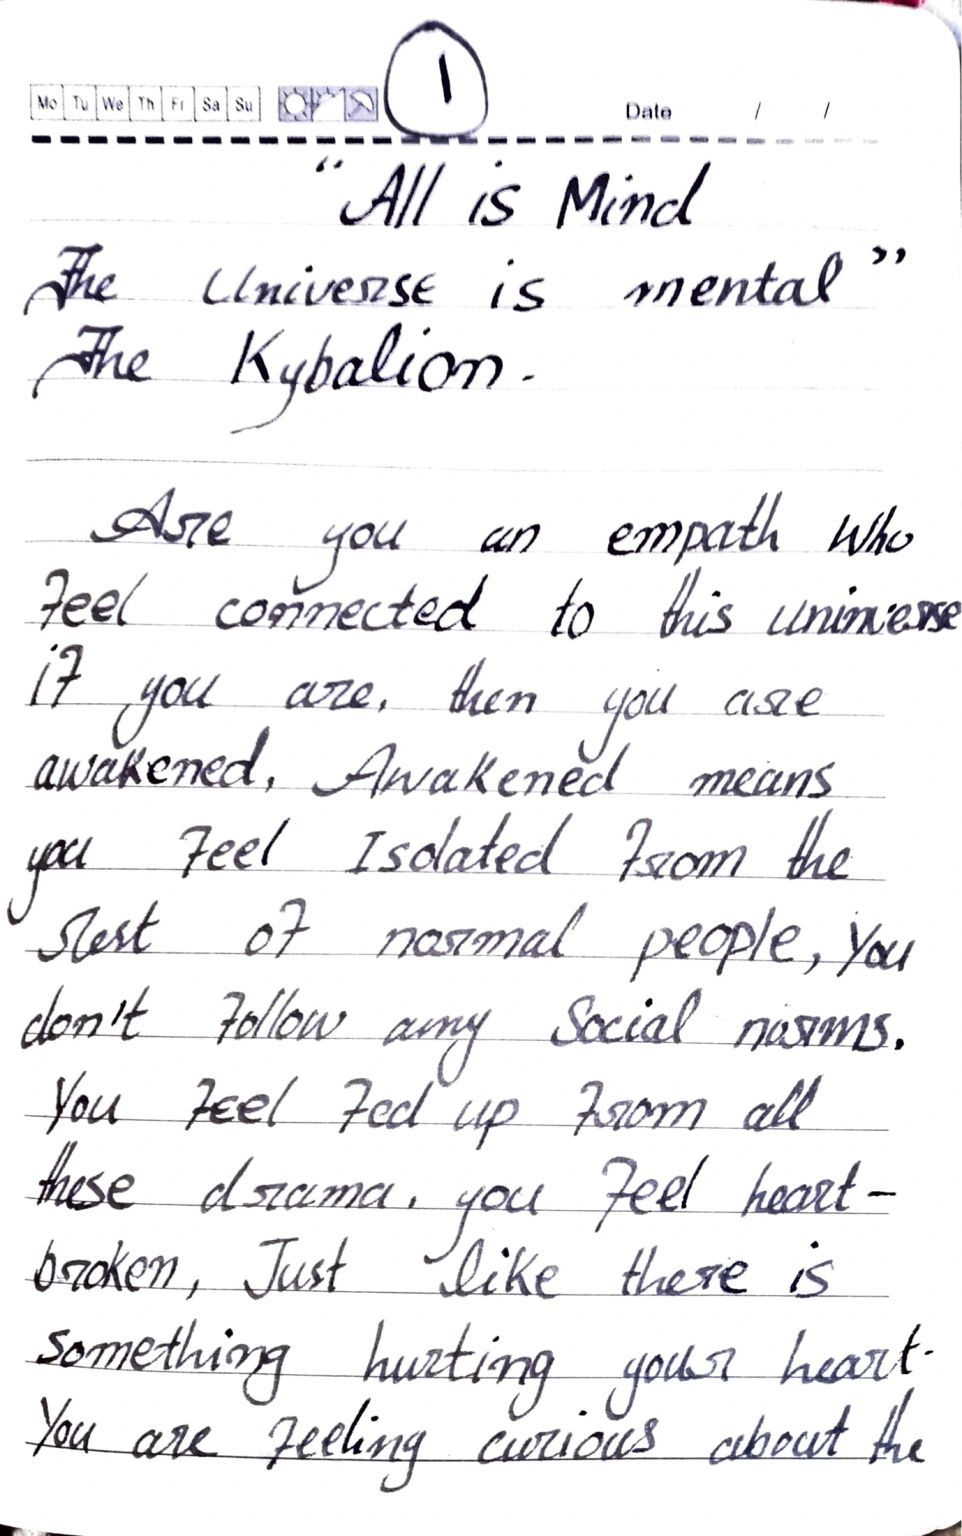 1
Mo Tu We Th Fr Sa Su Date / /
"All is Mind
The Universe is mental"
The Kybalion.
Are you an empath who
Feel connected to this universe
if you are, then you are
awakened, Awakened means
you Feel Isolated From the
Rest of normal people, You
don't Follow any Social norms.
You Feel Fed up From all
these drama. you Feel heart-
broken, Just like there is
something hurting your heart.
You are Feeling curious about the